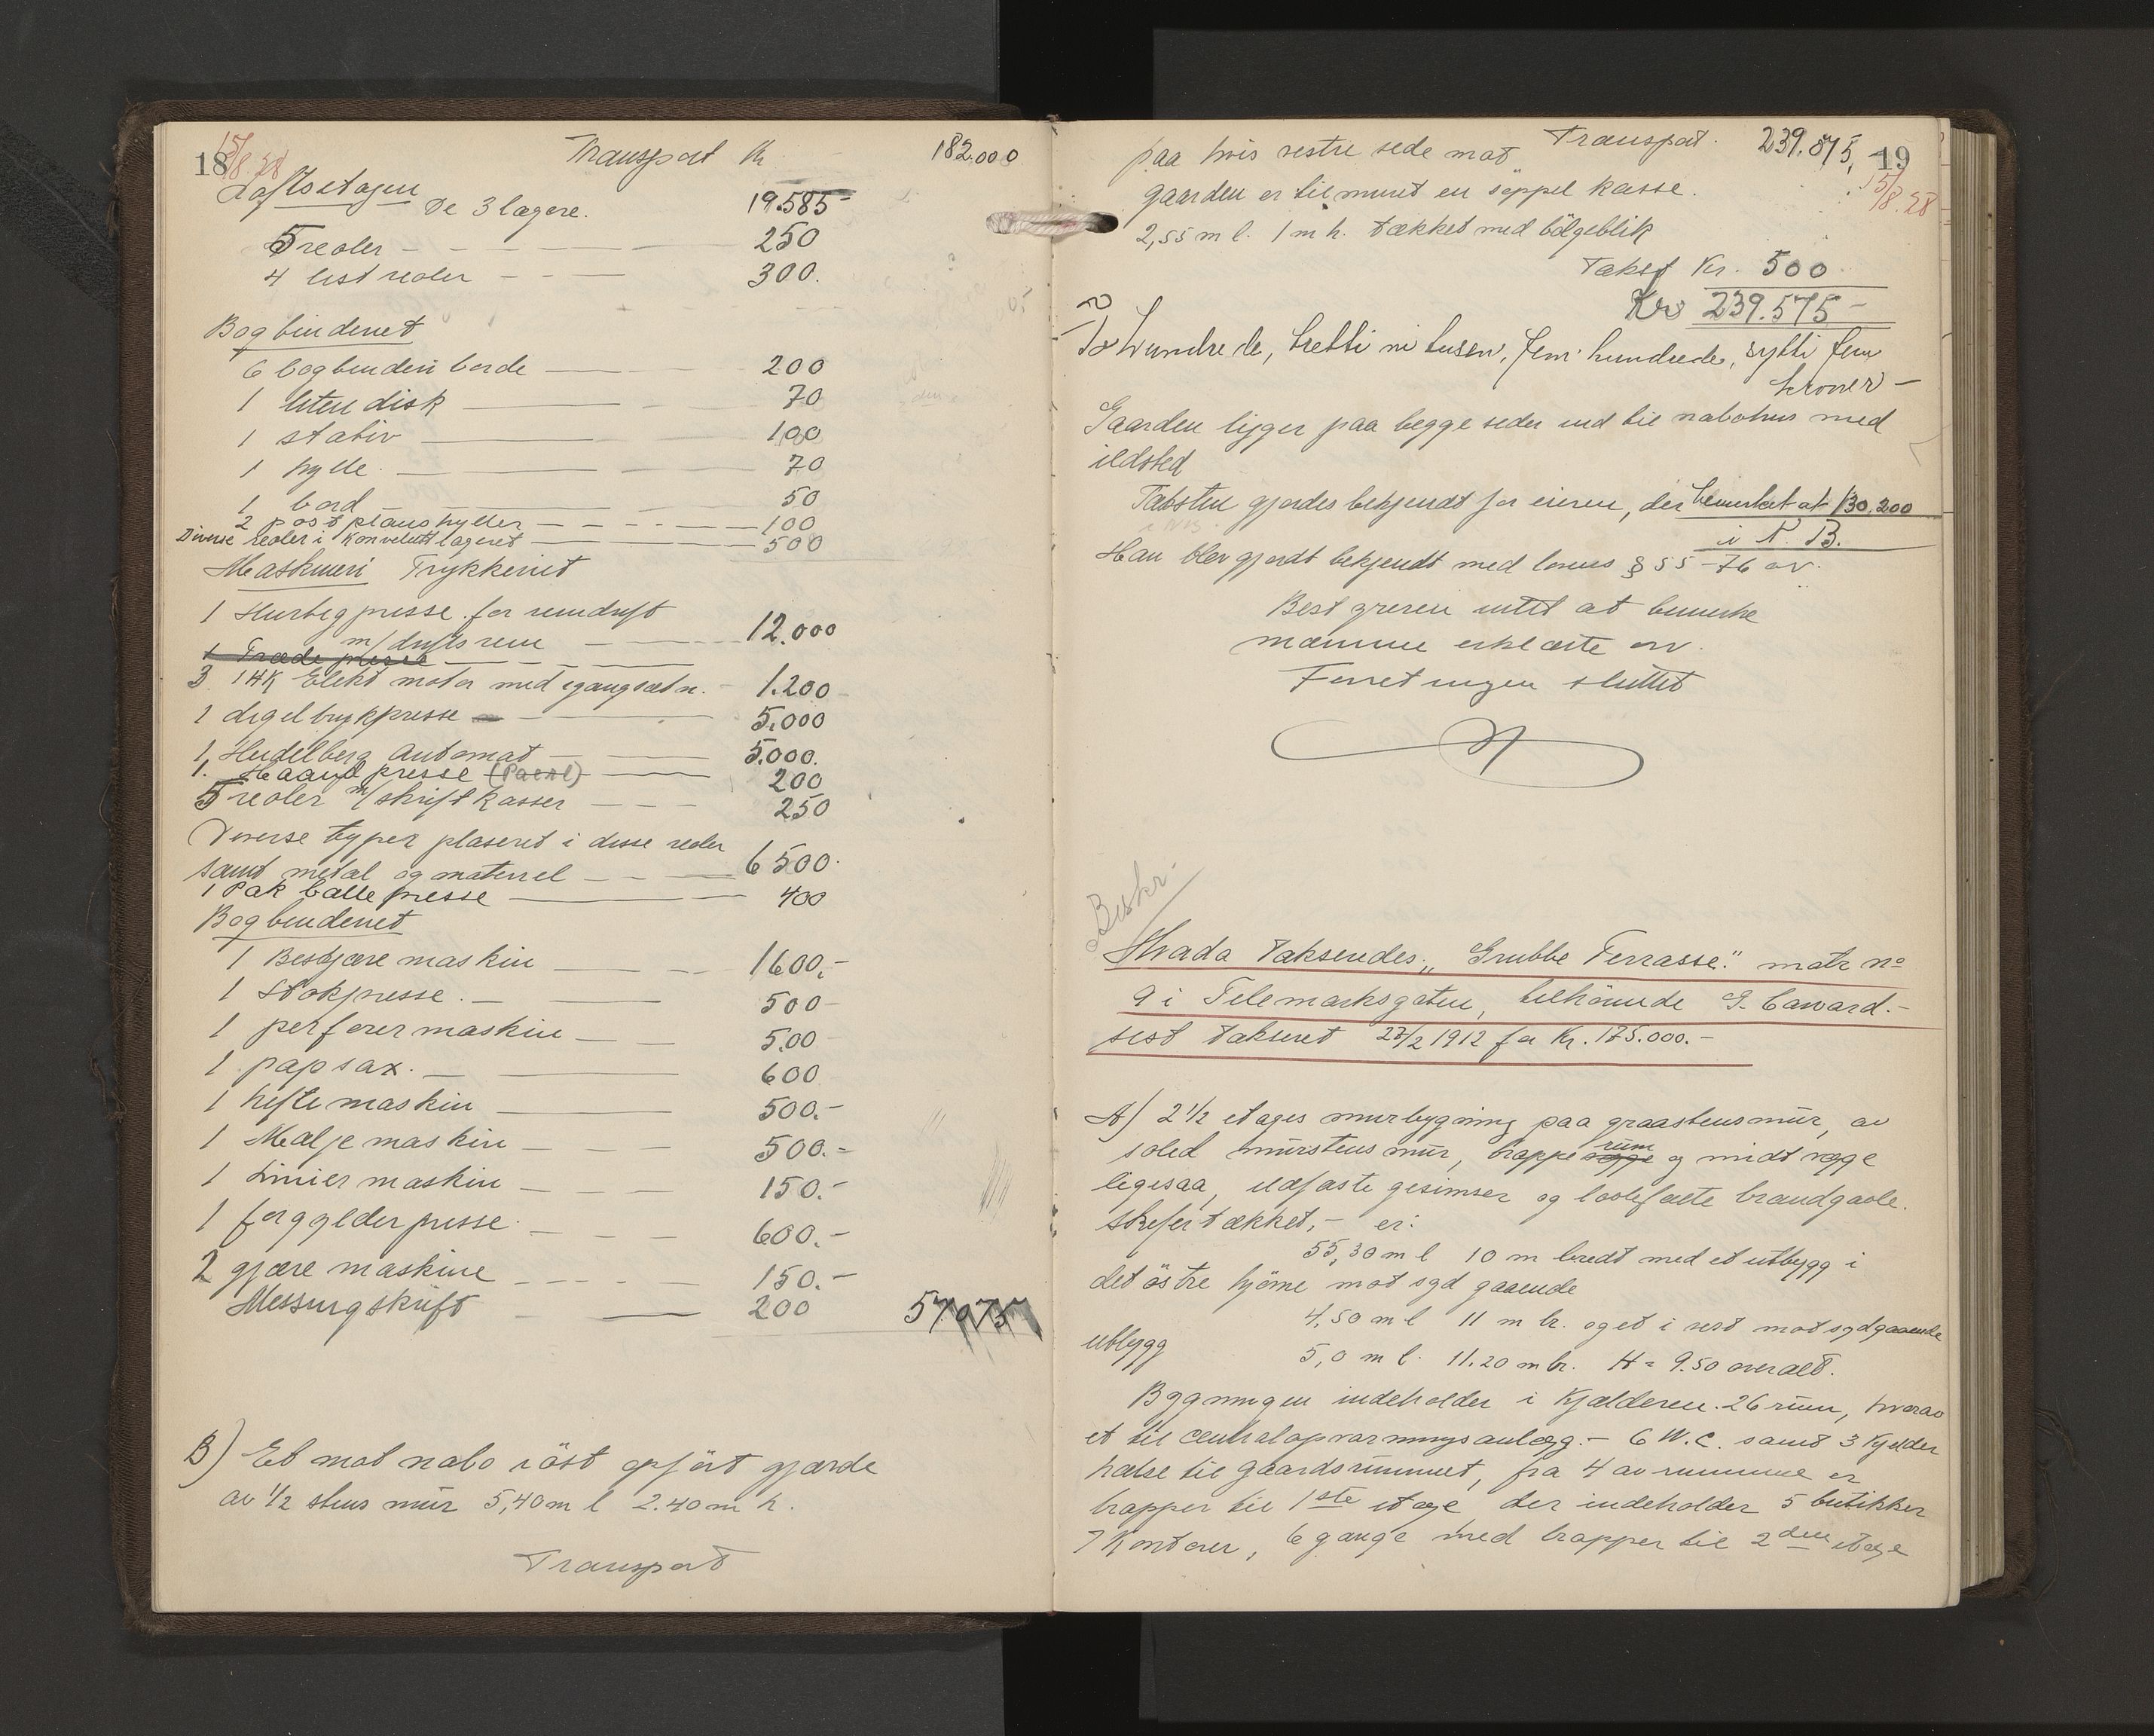 18 15/8 28 Transport Kr 182.000
Loftsetagen De 3 lagere. 19.585-
5 reoler 250
4 list reoler 300.
Bogbinderiet
6 bogbinderi borde 200
1 liten disk 70
1 stativ 100
1 hylle 70
1 bord 50
2 post plans hyller 100
Diverse reoler i Konvolutt lageret 500
Maskineri Trykkeriet
1 Hurtigpresse for remdrift
m/drifts rem 12.000
1 Træde presse
3 1 HK Elekt motor med igangsætn. 1.200
1 digel trykpresse 5.000
1 Heidelberg Automat 5.000.
1. Haand presse (Paerl) 200
5 reoler m/skrift kasser 250
Diverse typer plaseret i disse reoler
samt metal og materiel 6500.
1 Pak balle presse 400
Bogbinderiet
1 Beskjære maskin 1600,-
1 Stokpresse. 500-
1 perforer maskin 500
1 papsax. 600
1 hefte maskin 500.-
1 Malje maskin 500.-
1 Linier maskin 150.-
1 forgylder presse 600.-
2 gjære maskine 150.-
Messingskrift 200 57075
B) Et mot nabo i öst opfört gjærde
av 1/2 stens mur 5,40 m l 2.40 m h.
Transport
Transport. 239.075, 19
paa hvis vestre side mot
15/8.28
gaarden er tilmuret en söppel kasse.
2,55 m l. 1 m h. tækket med bölgeblik
Takst Kr. 500
Kr 239.575-
To hundrede, tretti ni tusen, fem hundrede, sytti fem
kroner-
Gaarden ligger paa begge sider ind til nabohus med
ildsted
Taksten gjordes bekjendt for eieren, der bemerket at 130.200
i N. B.
Han blev gjordt bekjendt med lovens § 55-76 ov.
Best yreren intet at bemerke
mænnene erklærte ov.
Forretningen sluttet
Beskr.
Hvada takseredes "Grubbe Terrasse." matr no
9 i Telemarksgaten, tilhörende G. Coward.-
sist takseret 27/2 1912 for Kr. 175.000.-
A) 2 1/2 etages murbygning paa graastensmur, av
rum
soled murstens mur, trappe vægge og midt vægge
ligesaa, udfaste gesimser og lodefoete brandgavle.
skifertækket,- er:
55,30 m l 10 m bredt med et utbygg i
det östre hjörne mot syd gaaende
4,50 m l 11 m br. og et i vest mot sydgaaende
utbygg
5,0 m l. 11.20 m br. H = 9.50 overalt.
Bygningen indeholder i Kjælderen. 26 rum, hvorav
et til centralopvarmningsanlegg.- 6 W.C. samt 3 Kjelder
halse til gaardsrummet, fra 4 av rummene er
trapper til 1ste etage der indeholder 5 butikker
7 Kontorer, 6 gange med trapper til 2den etage